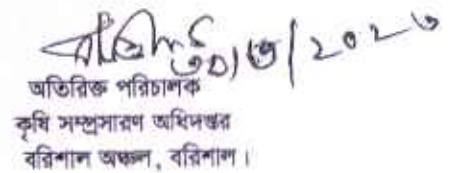 ৩০/৩/২০২৬
অতিরিক্ত পরিচালক
কৃষি সম্প্রসারণ অধিদপ্তর
বরিশাল অঞ্চল, বরিশাল।